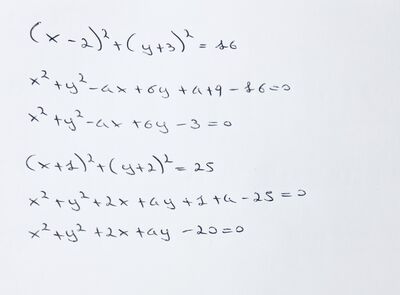 (x-2)²+(y+3)²=16
x²+y²-4x+6y+4+9-16=0
x²+y²-4x+6y-3=0
(x+1)²+(y+2)²=25
x²+y²+2x+4y+1+4-25=0
x²+y²+2x+4y-20=0